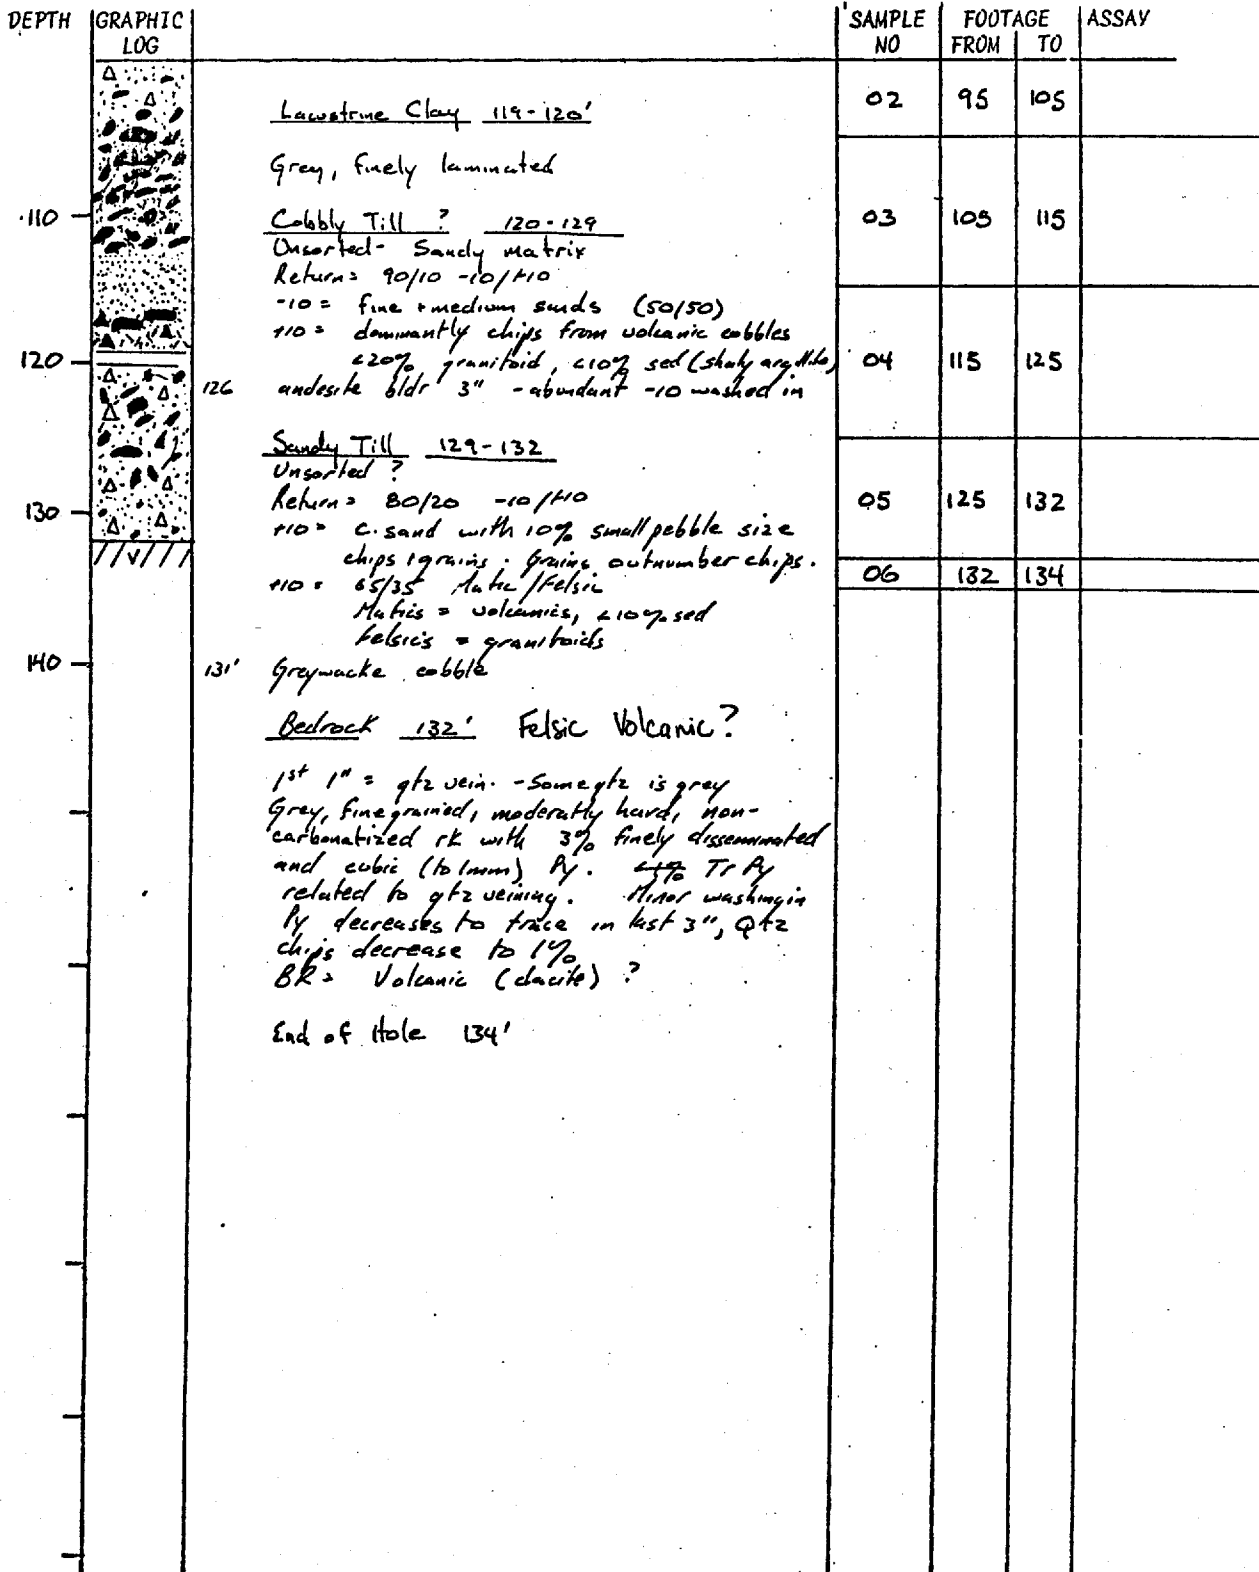 DEPTH GRAPHIC LOG SAMPLE NO FOOTAGE FROM TO ASSAY
02 95 105
Lacustrine Clay 119-120'
Grey, finely laminated
110 03 105 115
Cobbly Till ? 120-129
Unsorted - Sandy matrix
Return = 90/10 -10/+10
-10 = fine + medium sands (50/50)
+10 = dominantly chips from volcanic cobbles
120 <20% granitoid, <10% sed (shaly argillite) 04 115 125
126 andesite bldr 3" - abundant -10 washed in
Sandy Till 129-132
Unsorted ?
Return = 80/20 -10/+10
130 +10 = c. sand with 10% small pebble size 05 125 132
chips + grains. Grains outnumber chips.
//v/// 06 132 134
+10 = 65/35 Mafic/Felsic
Mafics = volcanics, <10% sed
Felsics = granitoids
140 131' Greywacke cobble
Bedrock 132' Felsic Volcanic?
1st 1" = qtz vein. - Some qtz is grey
Grey, fine grained, moderatly hard, non-
carbonatized rk with 3% finely disseminated
and cubic (to 1mm) Py. <1% Tr Py
related to qtz veining. Minor washing in
Py decreases to trace in last 3", Qtz
chips decrease to 1%
BR = Volcanic (dacite) ?
End of Hole 134'